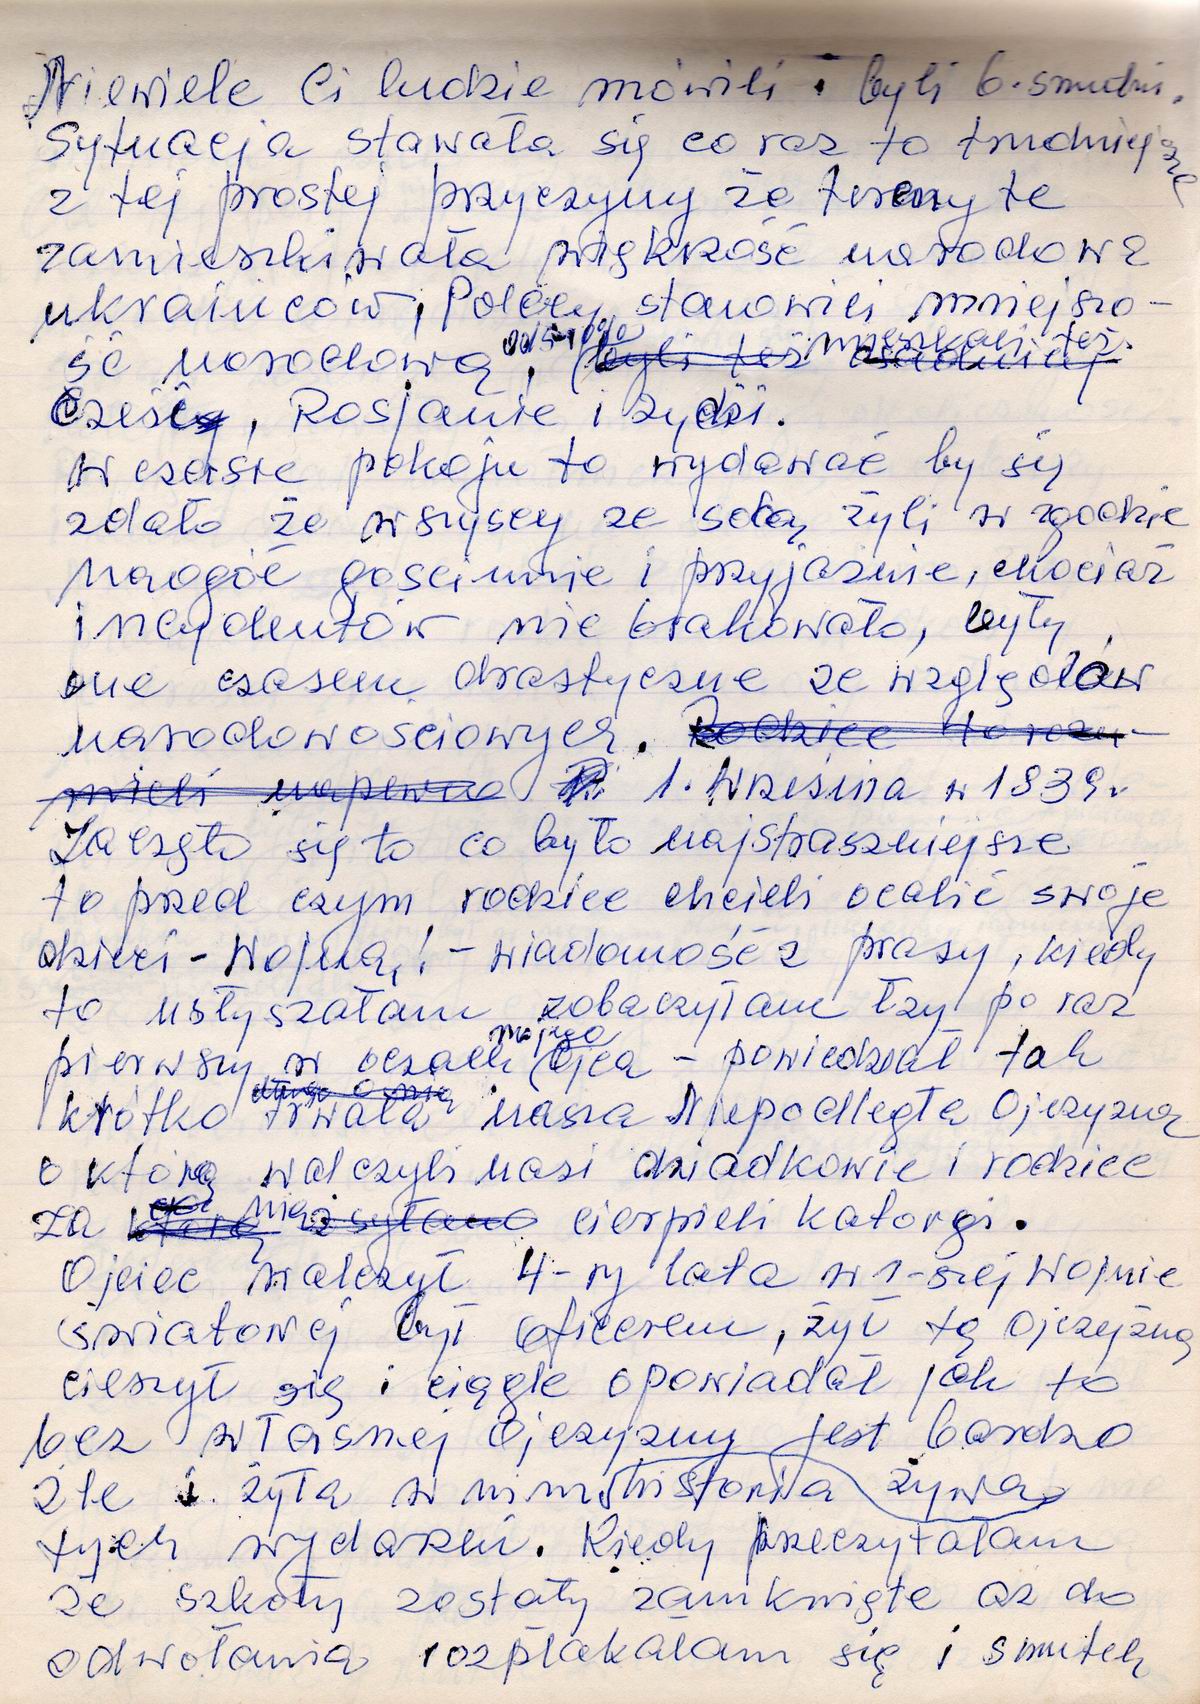 Niewiele Ci ludzie mówili i byli b. smutni.
Sytuacja stawała się co raz to trudniejsze
z tej prostej przyczyny że tereny te
zamieszkiwała większość narodowa
ukraińców, Polacy stanowili mniejszo-
ść narodową, (byli też mieszkali też.
Czesi, Rosjanie i żydzi.
w czasie pokoju to wydawać by się
zdało że wszyscy ze sobą żyli w zgodzie
naogół gościnnie i przyjaźnie, chociaż
incydentów nie brakowało, były
one czasem drastyczne ze względów
narodowościowych. Rodzice to rozu-
mieli napewno 1. Września w 1939r
Zaczęło się to co było najstraszniejsze
to przed czym rodzice chcieli ocalić swoje
dzieci - Wojna,! - wiadomość z prasy, kiedy
to usłyszałam zobaczyłam łzy po raz
pierwszy w oczach mojego Ojca - powiedział tak
krótko trwała nasza Niepodległa Ojczyzna
o którą walczyli nasi dziadkowie i rodzice
za którą nią zsyłano cierpieli katorgi.
Ojciec walczył 4-ry lata w 1-szej Wojnie
światowej był oficerem, żył tą Ojczyzną
cieszył się i ciągle opowiadał jak to
bez własnej Ojczyzny jest bardzo
źle i żyła w nim historia żywa
tych wydarzeń. Kiedy przeczytałam
że szkoły zostały zamknięte aż do
odwołania rozpłakałam się i smutek